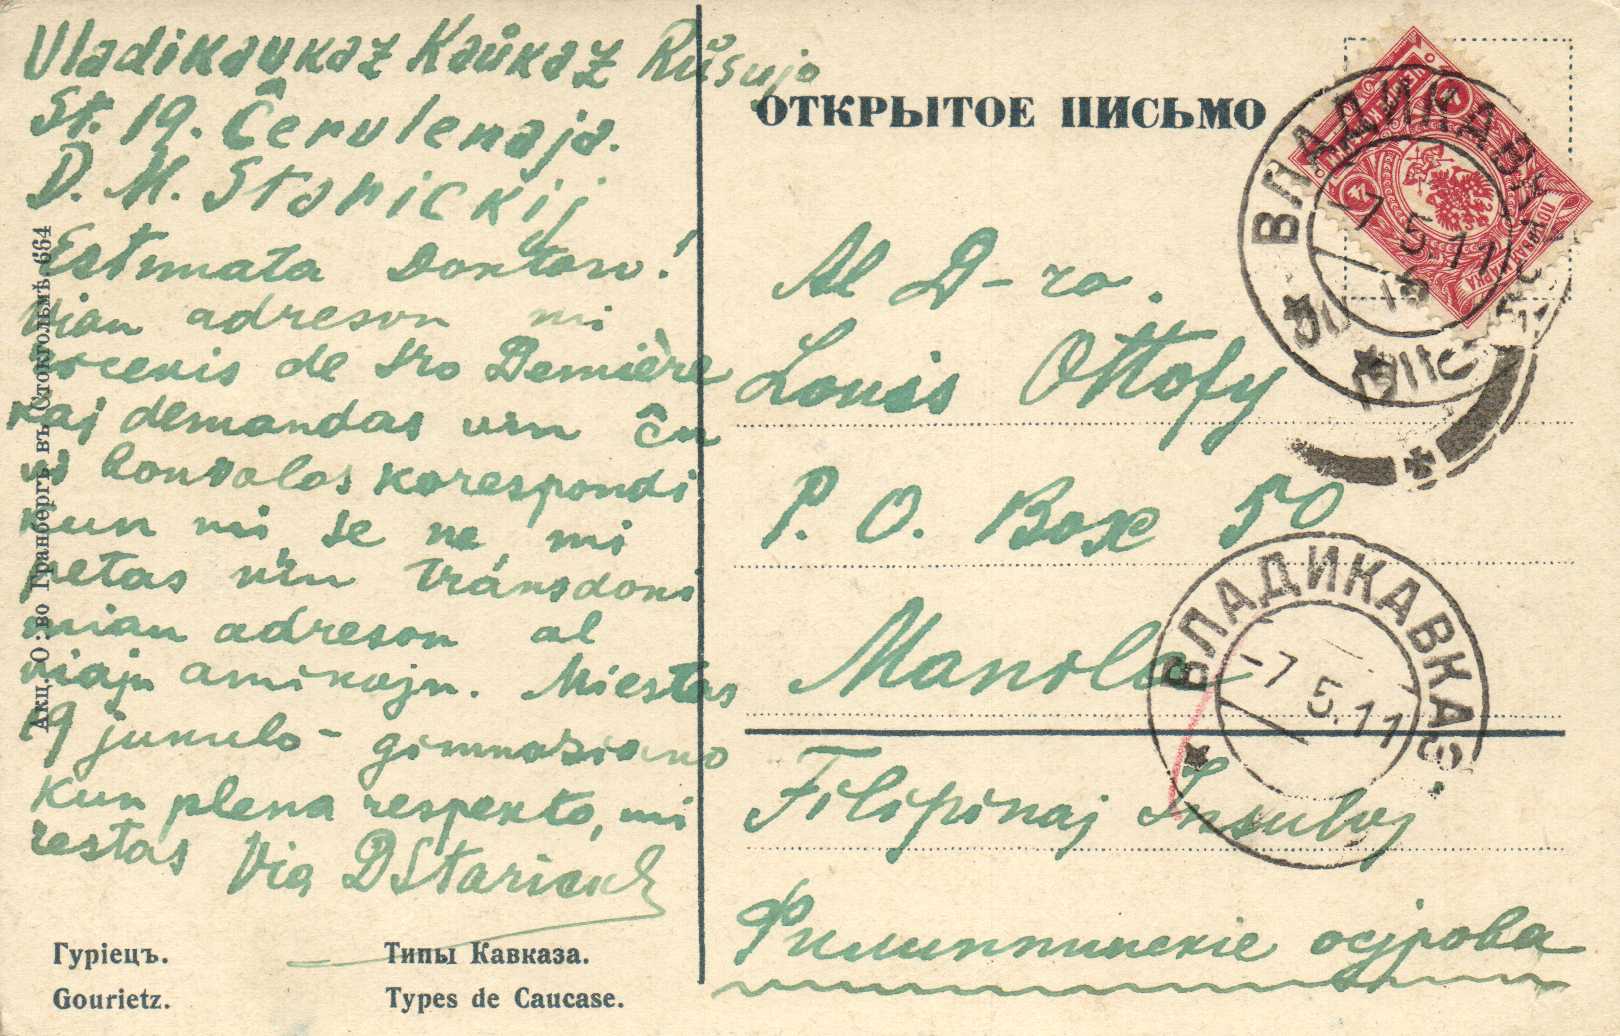 Vladikaukaz Kaŭkaz Rŭsujo
St. 19. Ĉerulenaja.
D. M. Starickij
Estimata Doktoro!
Vian adreson mi
ricevis de Sro Demière
kaj demandas vin ĉu
vi bonvolos korespondi
kun mi, se ne, mi
petas vin transdoni
mian adreson al
viajn amikojn. Mi estas
19 junulo-gimnaziano
Kun plena respekto, mi
restas Via DStarickij
Гурiецъ.
Gourietz.
Типы Кавказа.
Types de Caucase.
Акц. О:во Гранбергъ въ Стокгольмѣ. 664
ОТКРЫТОЕ ПИСЬМО
Al D-ro.
Louis Ottofy
P. O. Box 50
Manila
Filipinaj Insuloj
Филиппинскiе острова
ВЛАДИКАВК
7 5.11
ВЛАДИКАВКАЗ
-7 5.11